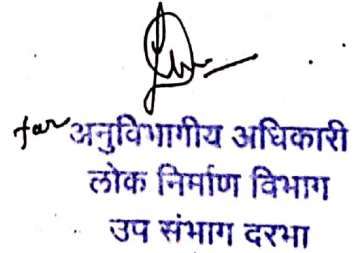 for अनुविभागीय अधिकारी
लोक निर्माण विभाग
उप संभाग दरभा